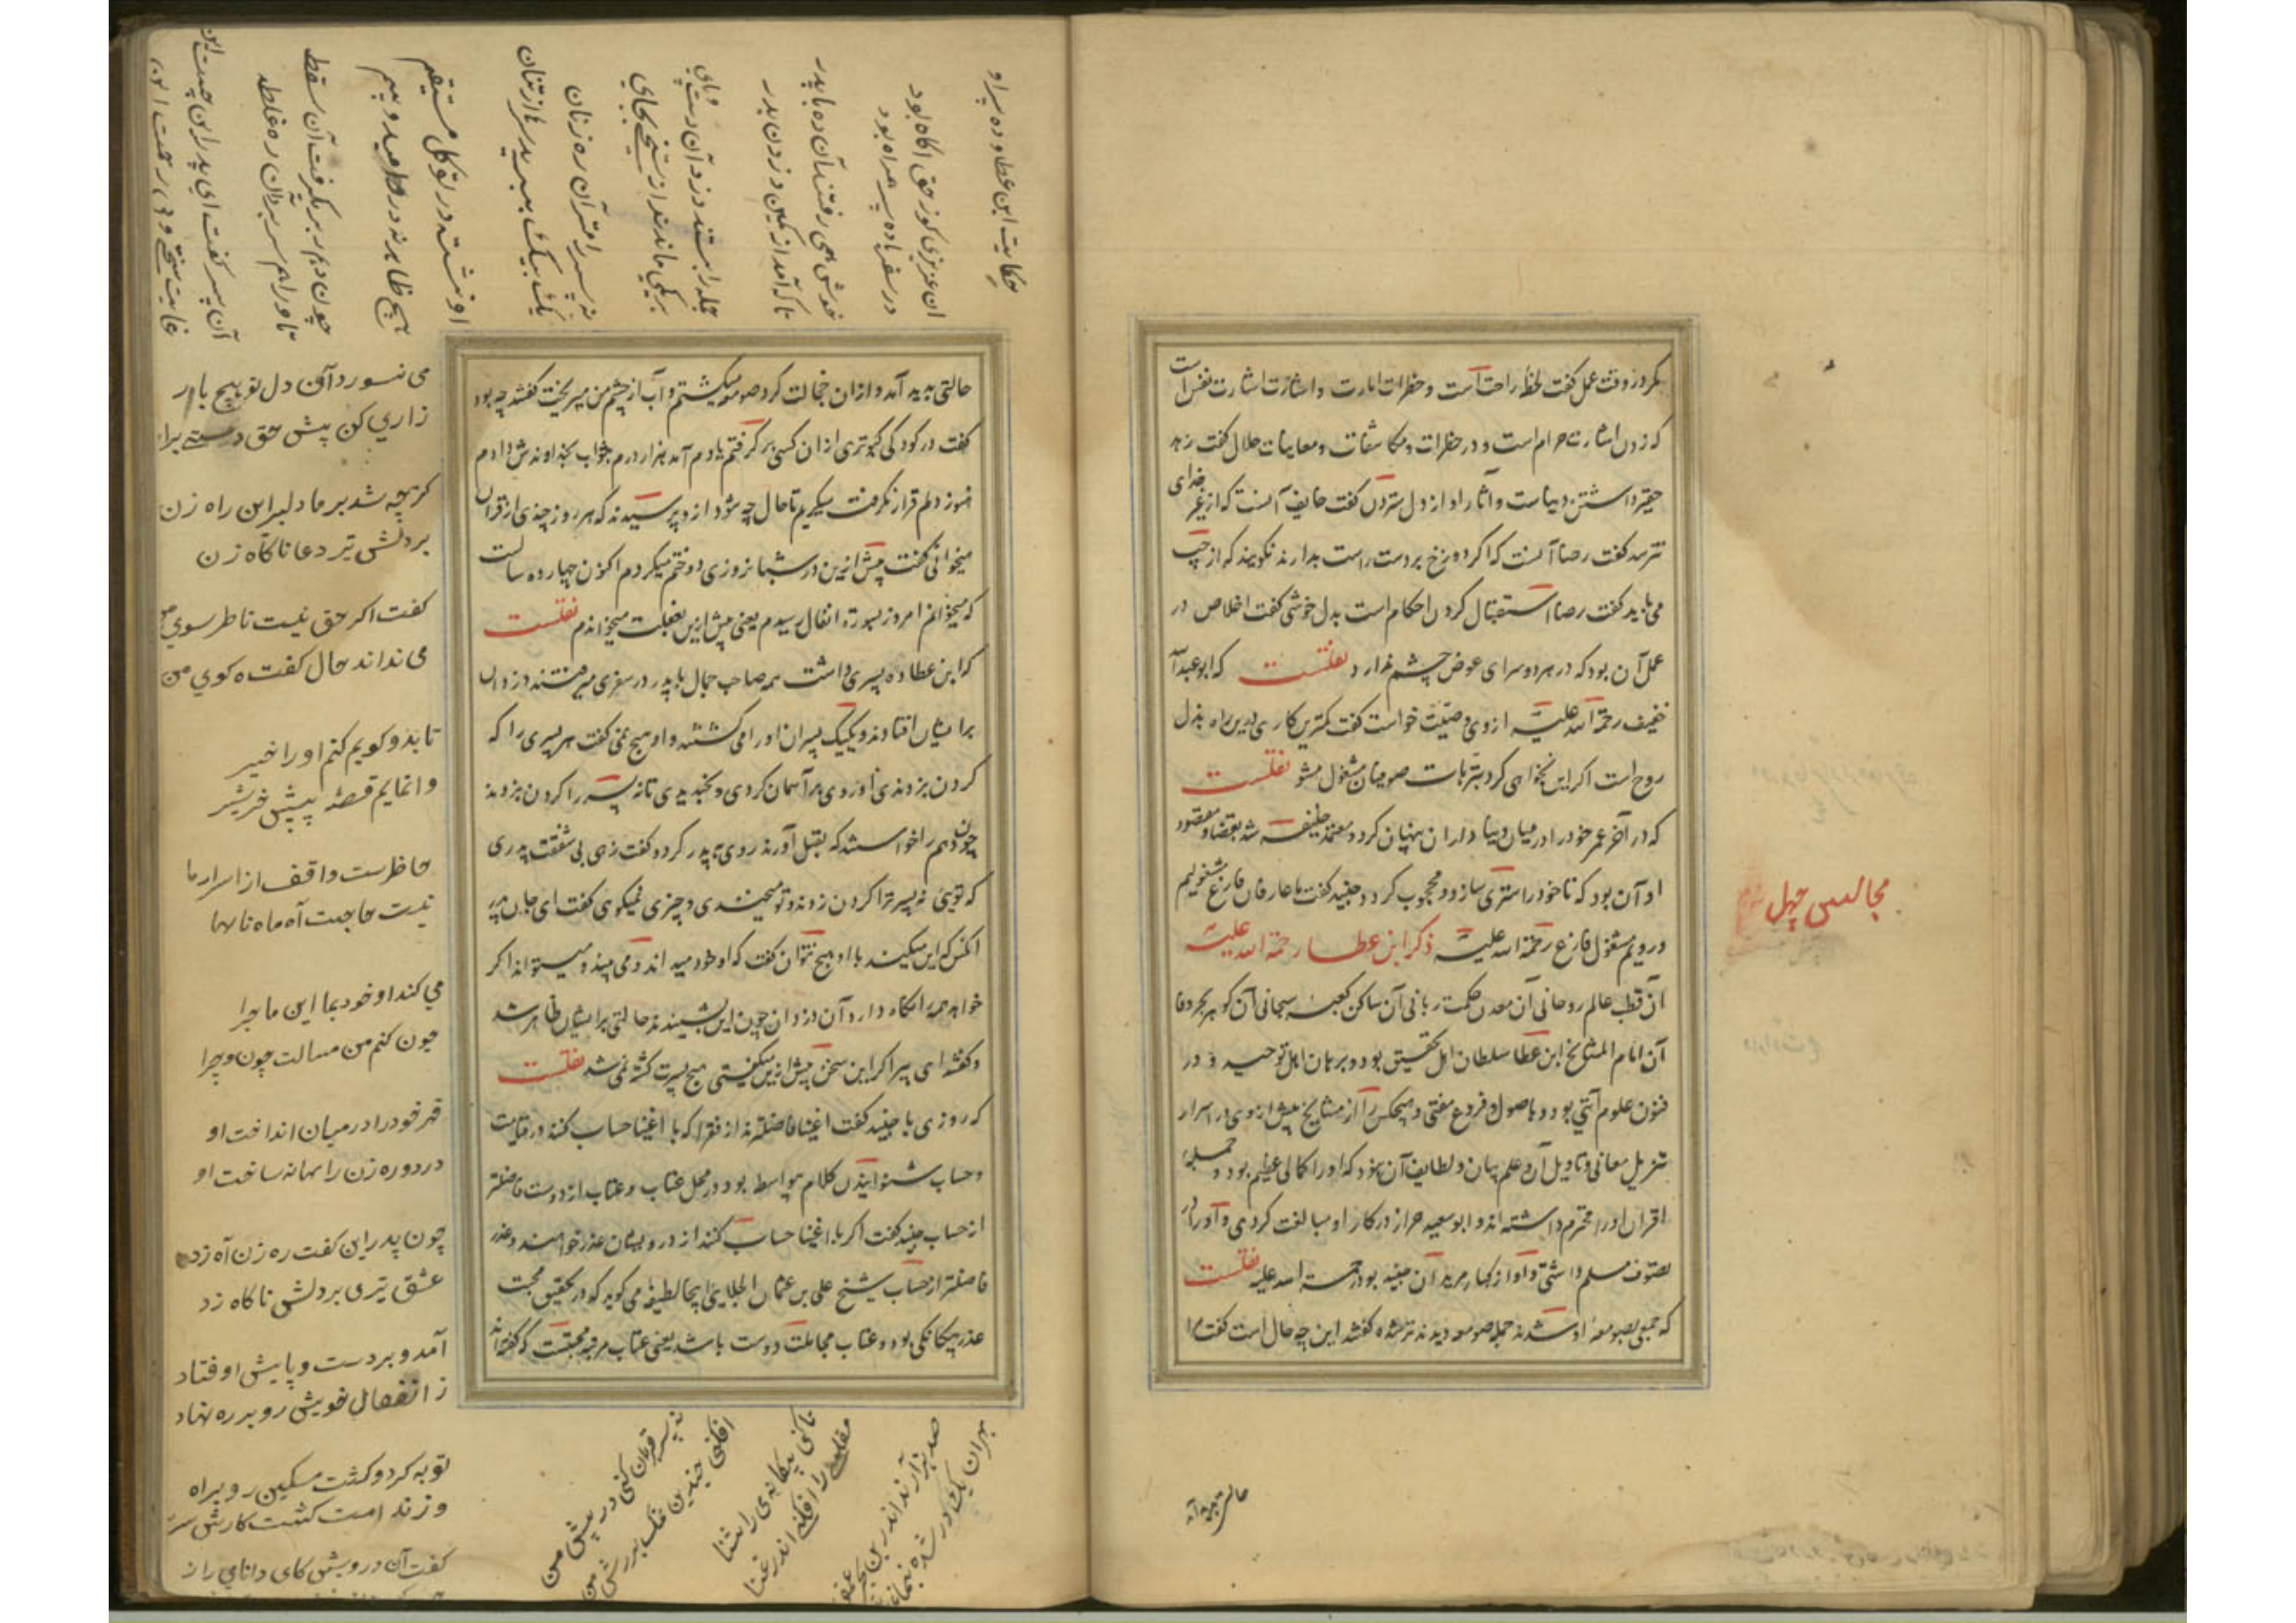 نکرد در وقت عمل گفت لحظ راحت است و خطرات امارت و اشارت اشارت نفس است
که زدن اشارت حرام است و در خطرات و مکاشفات و معاینات حلال گفت زهد
حقیر داشتن دنیاست و آثار او از دل ستردن گفت خایف آنست که از غیر خدای
نترسد گفت رضا آنست که اگر دوزخ بر دست راست بدارند نگویند که از چپ
می باید گفت رضا استقبال کردن احکام است بدل خوشی گفت اخلاص در
عمل آن بود که در هر دو سرای عوض چشم ندارد نقلست که ابو عبدالله
خفیف رحمة الله علیه از وی وصیت خواست گفت کمترین کاری درین راه بذل
روح است اگر این نخواهی کرد بترهات صوفیان مشغول مشو نقلست
که در آخر عمر خود را در میان دنیا داران پنهان کرد و معتمد خلیفه شد بقضا و مقصود
او آن بود که تا خود را ستری سازد و محجوب گردد جنید گفت ما عارفان فارغ مشغولیم
و رویم مشغول فارغ رحمة الله علیه ذکر ابن عطا رحمة الله علیه
آن قطب عالم روحانی آن معدن حکمت ربانی آن ساکن کعبه سبحانی آن گوهر بحر وفا
آن امام المشایخ ابن عطا سلطان اهل تحقیق بود و برهان اهل توحید و در
فنون علوم آیتی بود و باصول و فروع مفتی و هیچکس را از مشایخ پیش از وی در اسرار
تنزیل معانی و تاویل آن و علم بیان و لطایف آن نبود که او را کمالی عظیم بود و جمله
اقران او را محترم داشته اند و ابو سعید خراز در کار او مبالغت کردی و جز او را
بتصوف مسلم داشتی و او از کبار مریدان جنید بود رحمة الله علیه نقلست
که جمعی بصومعه او شدند جمله صومعه دیدند تر شده گفتند این چه حال است گفت مرا
حالتی پدید آمد
مجالس چهل
حالتی پدید آمد و از آن خجالت گرد صومعه میگشتم و آب از چشم من میریخت گفتند چه بود
گفت در کودکی کبوتری از آن کسی بر گرفتم یادم آمد هزار درم بثواب بخداوندش دادم
هنوز دلم قرار نگرفت میگریم تا حال چه شود از وپرسیدند که هر روز چندی از قرآن
میخوانی گفت پیش ازین در شبانروزی دو ختم میکردم اکنون چهارده سالست
که میخوانم امروز بسوره انفال رسیدم یعنی پیش ازین بغفلت میخواندم نقلست
که ابن عطا ده پسری داشت همه صاحب جمال با پدر در سفری میرفتند دزدان
بر ایشان افتادند و یکیک پسران او را می کشتند و او هیچ نمی گفت هر پسری را که
گردن بزدندی او روی بر آسمان کردی و بخندیدی تا نه پسر را گردن بزدند
چون دهم را خواستند که بقتل آورند روی به پدر کرد و گفت زهی بی شفقت پدری
که تویی نه پسر ترا گردن زدند و تو میخندی و چیزی نمیگویی گفت ای جان پدر
آنکس که این میکند با او هیچ نتوان گفت که او خود میداند و می بیند و میتواند اگر
خواهد همه را نگاه دارد آن دزدان چون این بشنیدند حالتی بر ایشان ظاهر شد
و گفتند ای پیر اگر این سخن پیش ازین میگفتی هیچ پسرت کشته نمی شد نقلست
که روزی با جنید گفت اغنیا فاضلترند از فقرا که با اغنیا حساب کنند در قیامت
و حساب شنوانیدن کلام بیواسطه بود در محل عتاب و عتاب از دوست فاضلتر
از حساب جنید گفت اگر با اغنیا حساب کنند از درویشان عذر خواهند و عذر
فاضلتر از حساب شیخ علی بن عثمان الجلابی اینجا لطیفه می گوید که در تحقیق محبت
عذر بیگانگی بود و عتاب مخالفت دوست باشد یعنی عتاب مرمه محبتست که گفته اند
حکایت ابن عطا و ده پسر او
آن عزیزی کو ز حق آگاه بود
در سفر ده پسر همراه بود
خوش همی رفتند آن ده با پدر
ناگه آمد از کمین دزدان بدر
جمله را بستند دزد آن دست و پای
بر یکی ماندند از تیغی بجای
نه پسر را از قرآن ره زنان
یک بیک ببرید سر از تنان
او نشسته در توکل مستقیم
هیچ ظاهر نه در و امید و بیم
چون دهم بر گرفت آن سقط
تا ورا هم سر بران ره غلط
آن پسر گفت ای پدر این چیست این
می نسوزد آن دل تو هیچ بار
زاری کن پیش حق دستی برار
گر چه شد بر ما دلیر این راه زن
بر دلش تیر دعا ناگاه زن
گفت اگر حق نیست ناظر سوی من
می نداند حال گفت و گوی من
تا بدو گویم کنم او را خبیر
وا نمایم قصه پیش خبیر
حاظرست واقف از اسرار ما
نیست حاجت آه ما ه نالها
می کند او خود بما این ماجرا
چون کنم من مسالت چون و چرا
قهر خود را در میان انداخت او
دزد و ره زن را بهانه ساخت او
چون پدر این گفت ره زن آه زد
عشق تیری بر دلش ناگاه زد
آمد و بر دست و پایش اوفتاد
ز انفعال خویش رو بر ره نهاد
توبه کرد و گشت مسکین رو براه
گفت آن درویش کای دانای راز
نه پسر قربان کنی در پیش من
افکنی چندین نمک بر ریش من
تا کنی بیگانه ی را آشنا
مفلسی را افکنی اندر غنا
صد هزار آرند اندر بن بحر عمیق
بهر آن یک در شده